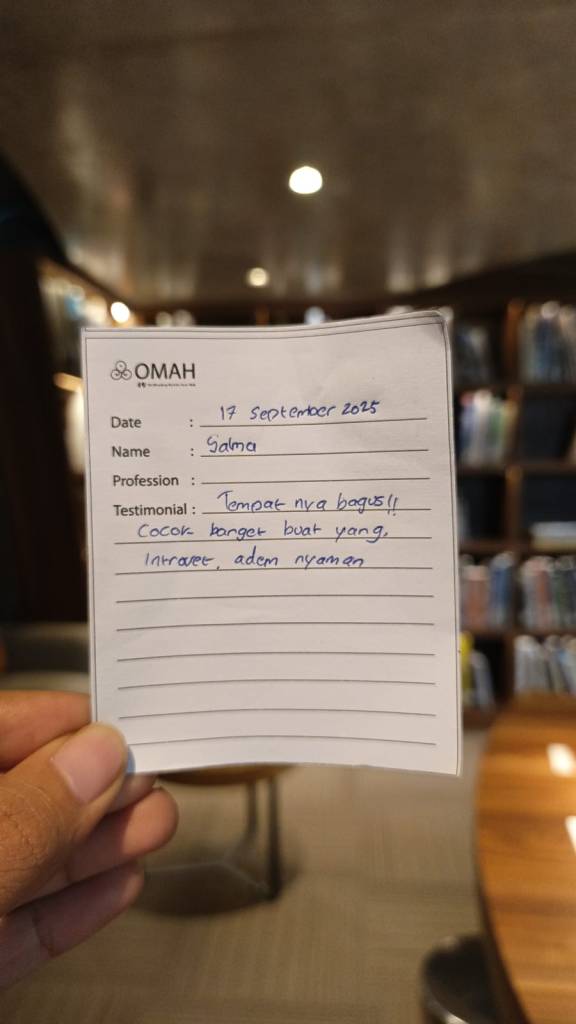 OMAH
Date : 17 September 2025
Name : Salma
Profession :
Testimonial : Tempat nya bagus!!
Cocok banget buat yang,
Introvet, adem nyaman